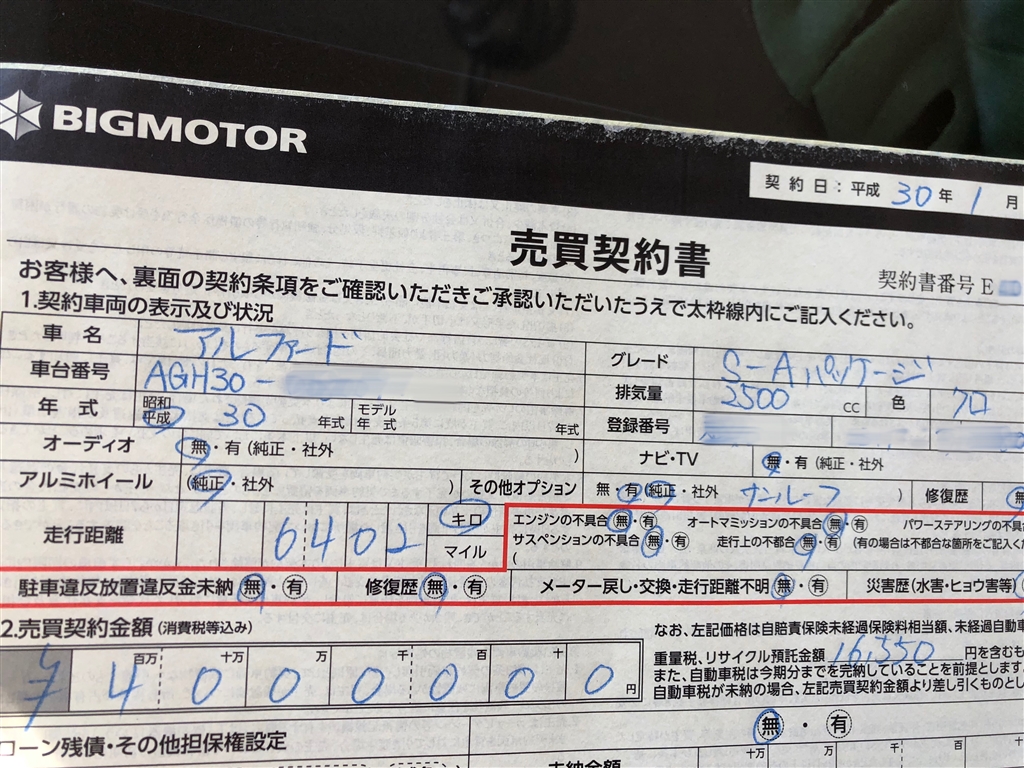 BIGMOTOR
契約日：平成 30 年 1 月
売買契約書
契約書番号 E
お客様へ、裏面の契約条項をご確認いただきご承認いただいたうえで太枠線内にご記入ください。
1.契約車両の表示及び状況
車 名 アルファード グレード S-Aパッケージ
車台番号 AGH30- 排気量 2500 cc 色 クロ
年 式 昭和 平成 30 年式 モデル年式 年式 登録番号
オーディオ 無・有(純正・社外 ) ナビ・TV 無・有(純正・社外
アルミホイール (純正・社外 ) その他オプション 無・有(純正・社外 サンルーフ ) 修復歴
走行距離 6402 キロ マイル
エンジンの不具合 無・有 オートマミッションの不具合 無・有 パワーステアリングの不具
サスペンションの不具合 無・有 走行上の不都合 無・有 (有の場合は不都合な箇所をご記入くだ
(
駐車違反放置違反金未納 無・有 修復歴 無・有 メーター戻し・交換・走行距離不明 無・有 災害歴(水害・ヒョウ害等)
2.売買契約金額(消費税等込み)
百万 十万 万 千 百 十
¥ 4 0 0 0 0 0 0 円
なお、左記価格は自賠責保険未経過保険料相当額、未経過自動車
重量税、リサイクル預託金額 16,350 円を含むも
また、自動車税は今期分までを完納していることを前提とします。
自動車税が未納の場合、左記売買契約金額より差し引くものとし
ローン残債・その他担保権設定 無・有
未納金額 十万 万 千 百 十